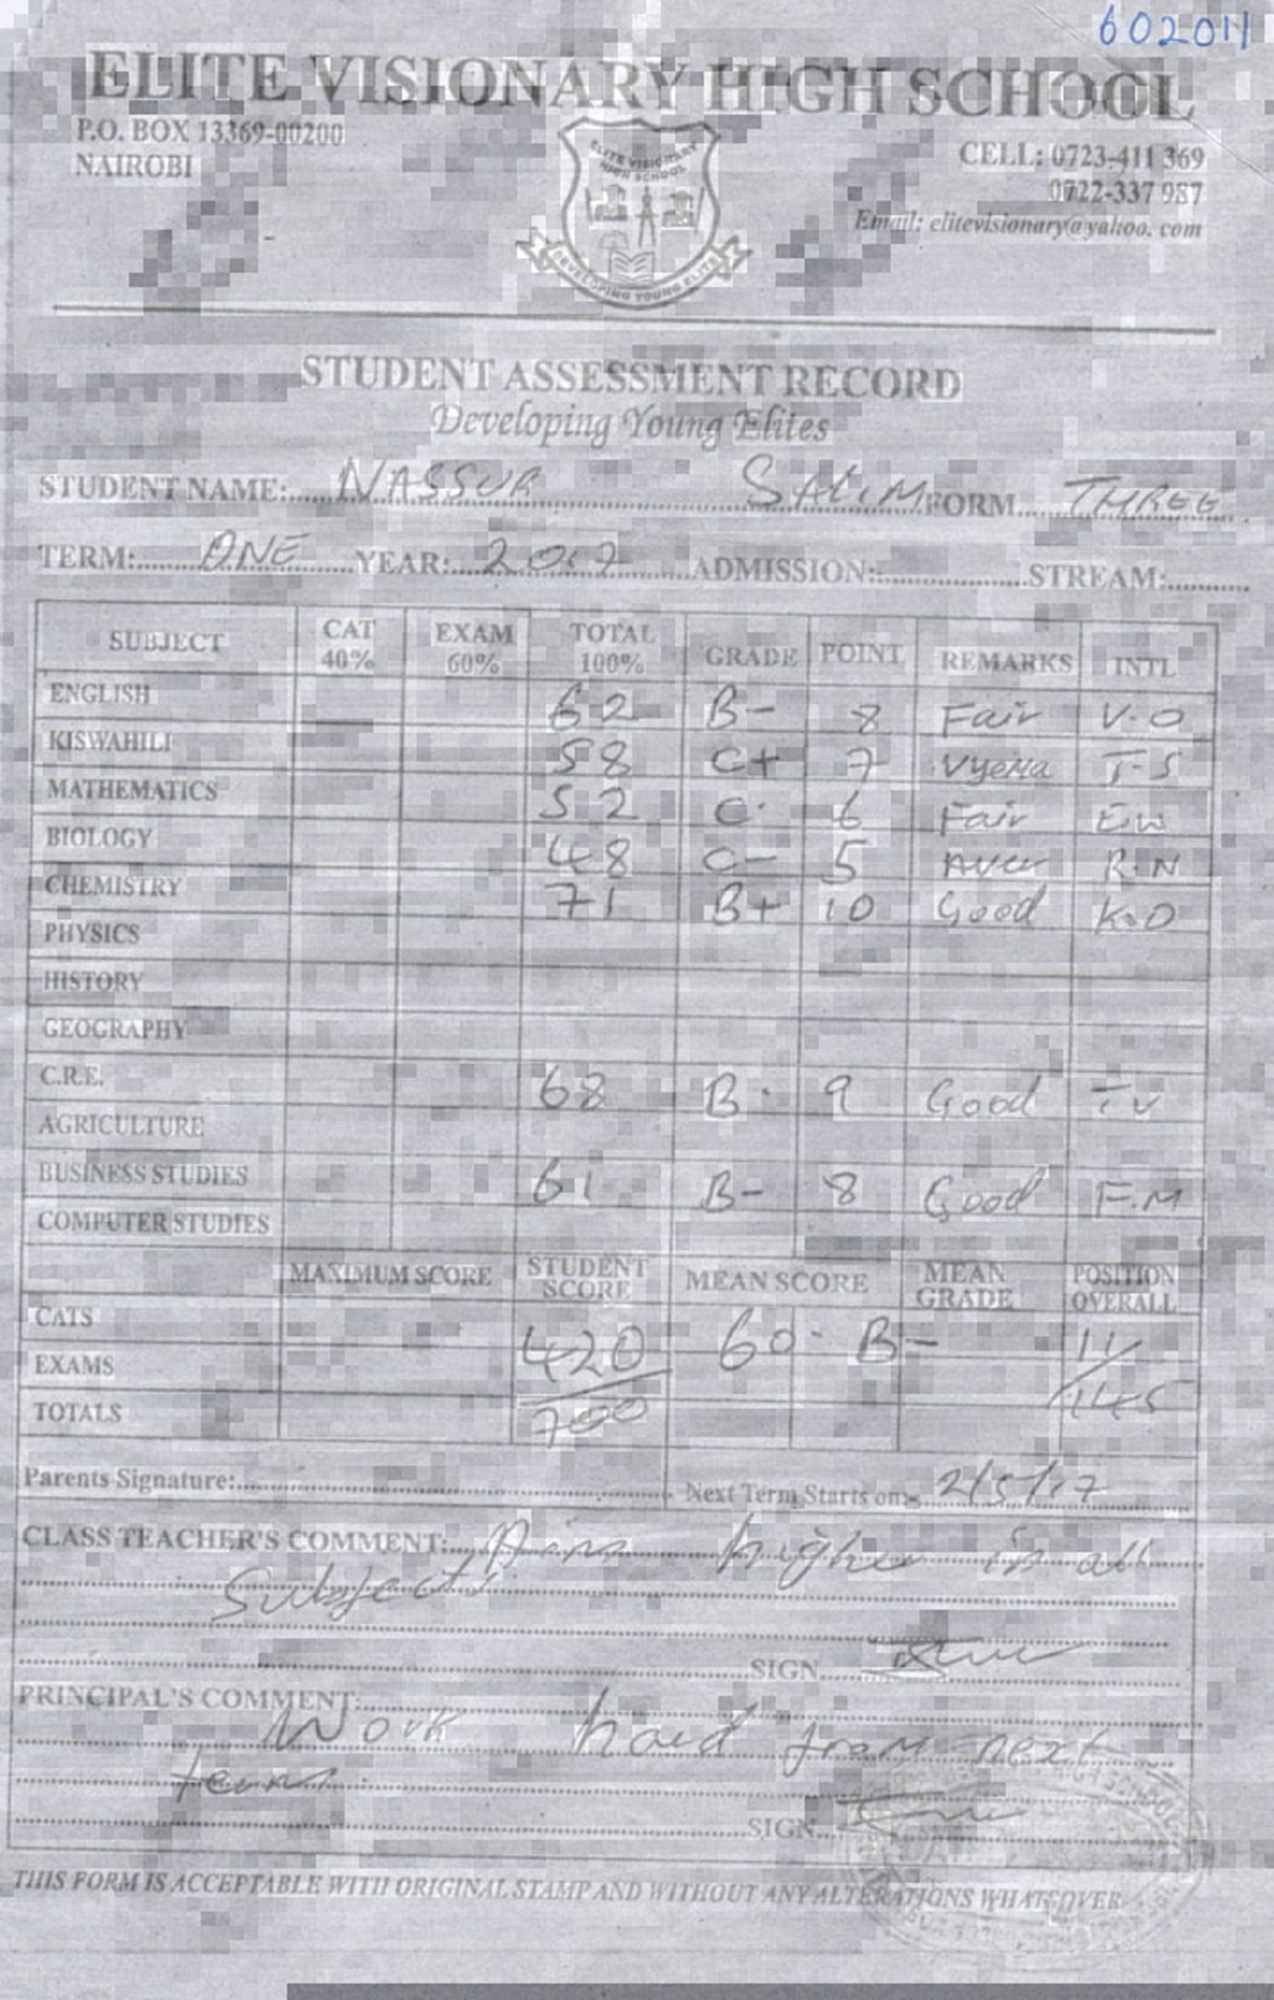 602011
ELITE VISIONARY HIGH SCHOOL
P.O. BOX 13369-00200
NAIROBI
CELL: 0723-411 369
0722-337 987
Email: elitevisionary@yahoo. com
ELITE VISIONARY
HIGH SCHOOL
DEVELOPING YOUNG ELITES
STUDENT ASSESSMENT RECORD
Developing Young Elites
STUDENT NAME: NASSUR SALIM FORM THREE
TERM: ONE YEAR: 2017 ADMISSION: STREAM:
SUBJECT CAT 40% EXAM 60% TOTAL 100% GRADE POINT REMARKS INTL
ENGLISH 62 B- 8 Fair V.O
KISWAHILI 58 C+ 7 Vyema T-S
MATHEMATICS 52 C 6 Fair E.W
BIOLOGY 48 C- 5 Aver R.N
CHEMISTRY 71 B+ 10 Good K.O
PHYSICS
HISTORY
GEOGRAPHY
C.R.E. 68 B 9 Good
AGRICULTURE
BUSINESS STUDIES 61 B- 8 Good F.M
COMPUTER STUDIES
MAXIMUM SCORE STUDENT SCORE MEAN SCORE MEAN GRADE POSITION OVERALL
CATS
EXAMS 420/700 60 B- 11/145
TOTALS
Parents Signature: Next Term Starts on:- 2/5/17
CLASS TEACHER'S COMMENT: Aim higher in all
subjects.
SIGN
PRINCIPAL'S COMMENT:
Work hard from next
term.
SIGN
THIS FORM IS ACCEPTABLE WITH ORIGINAL STAMP AND WITHOUT ANY ALTERATIONS WHATSOVER